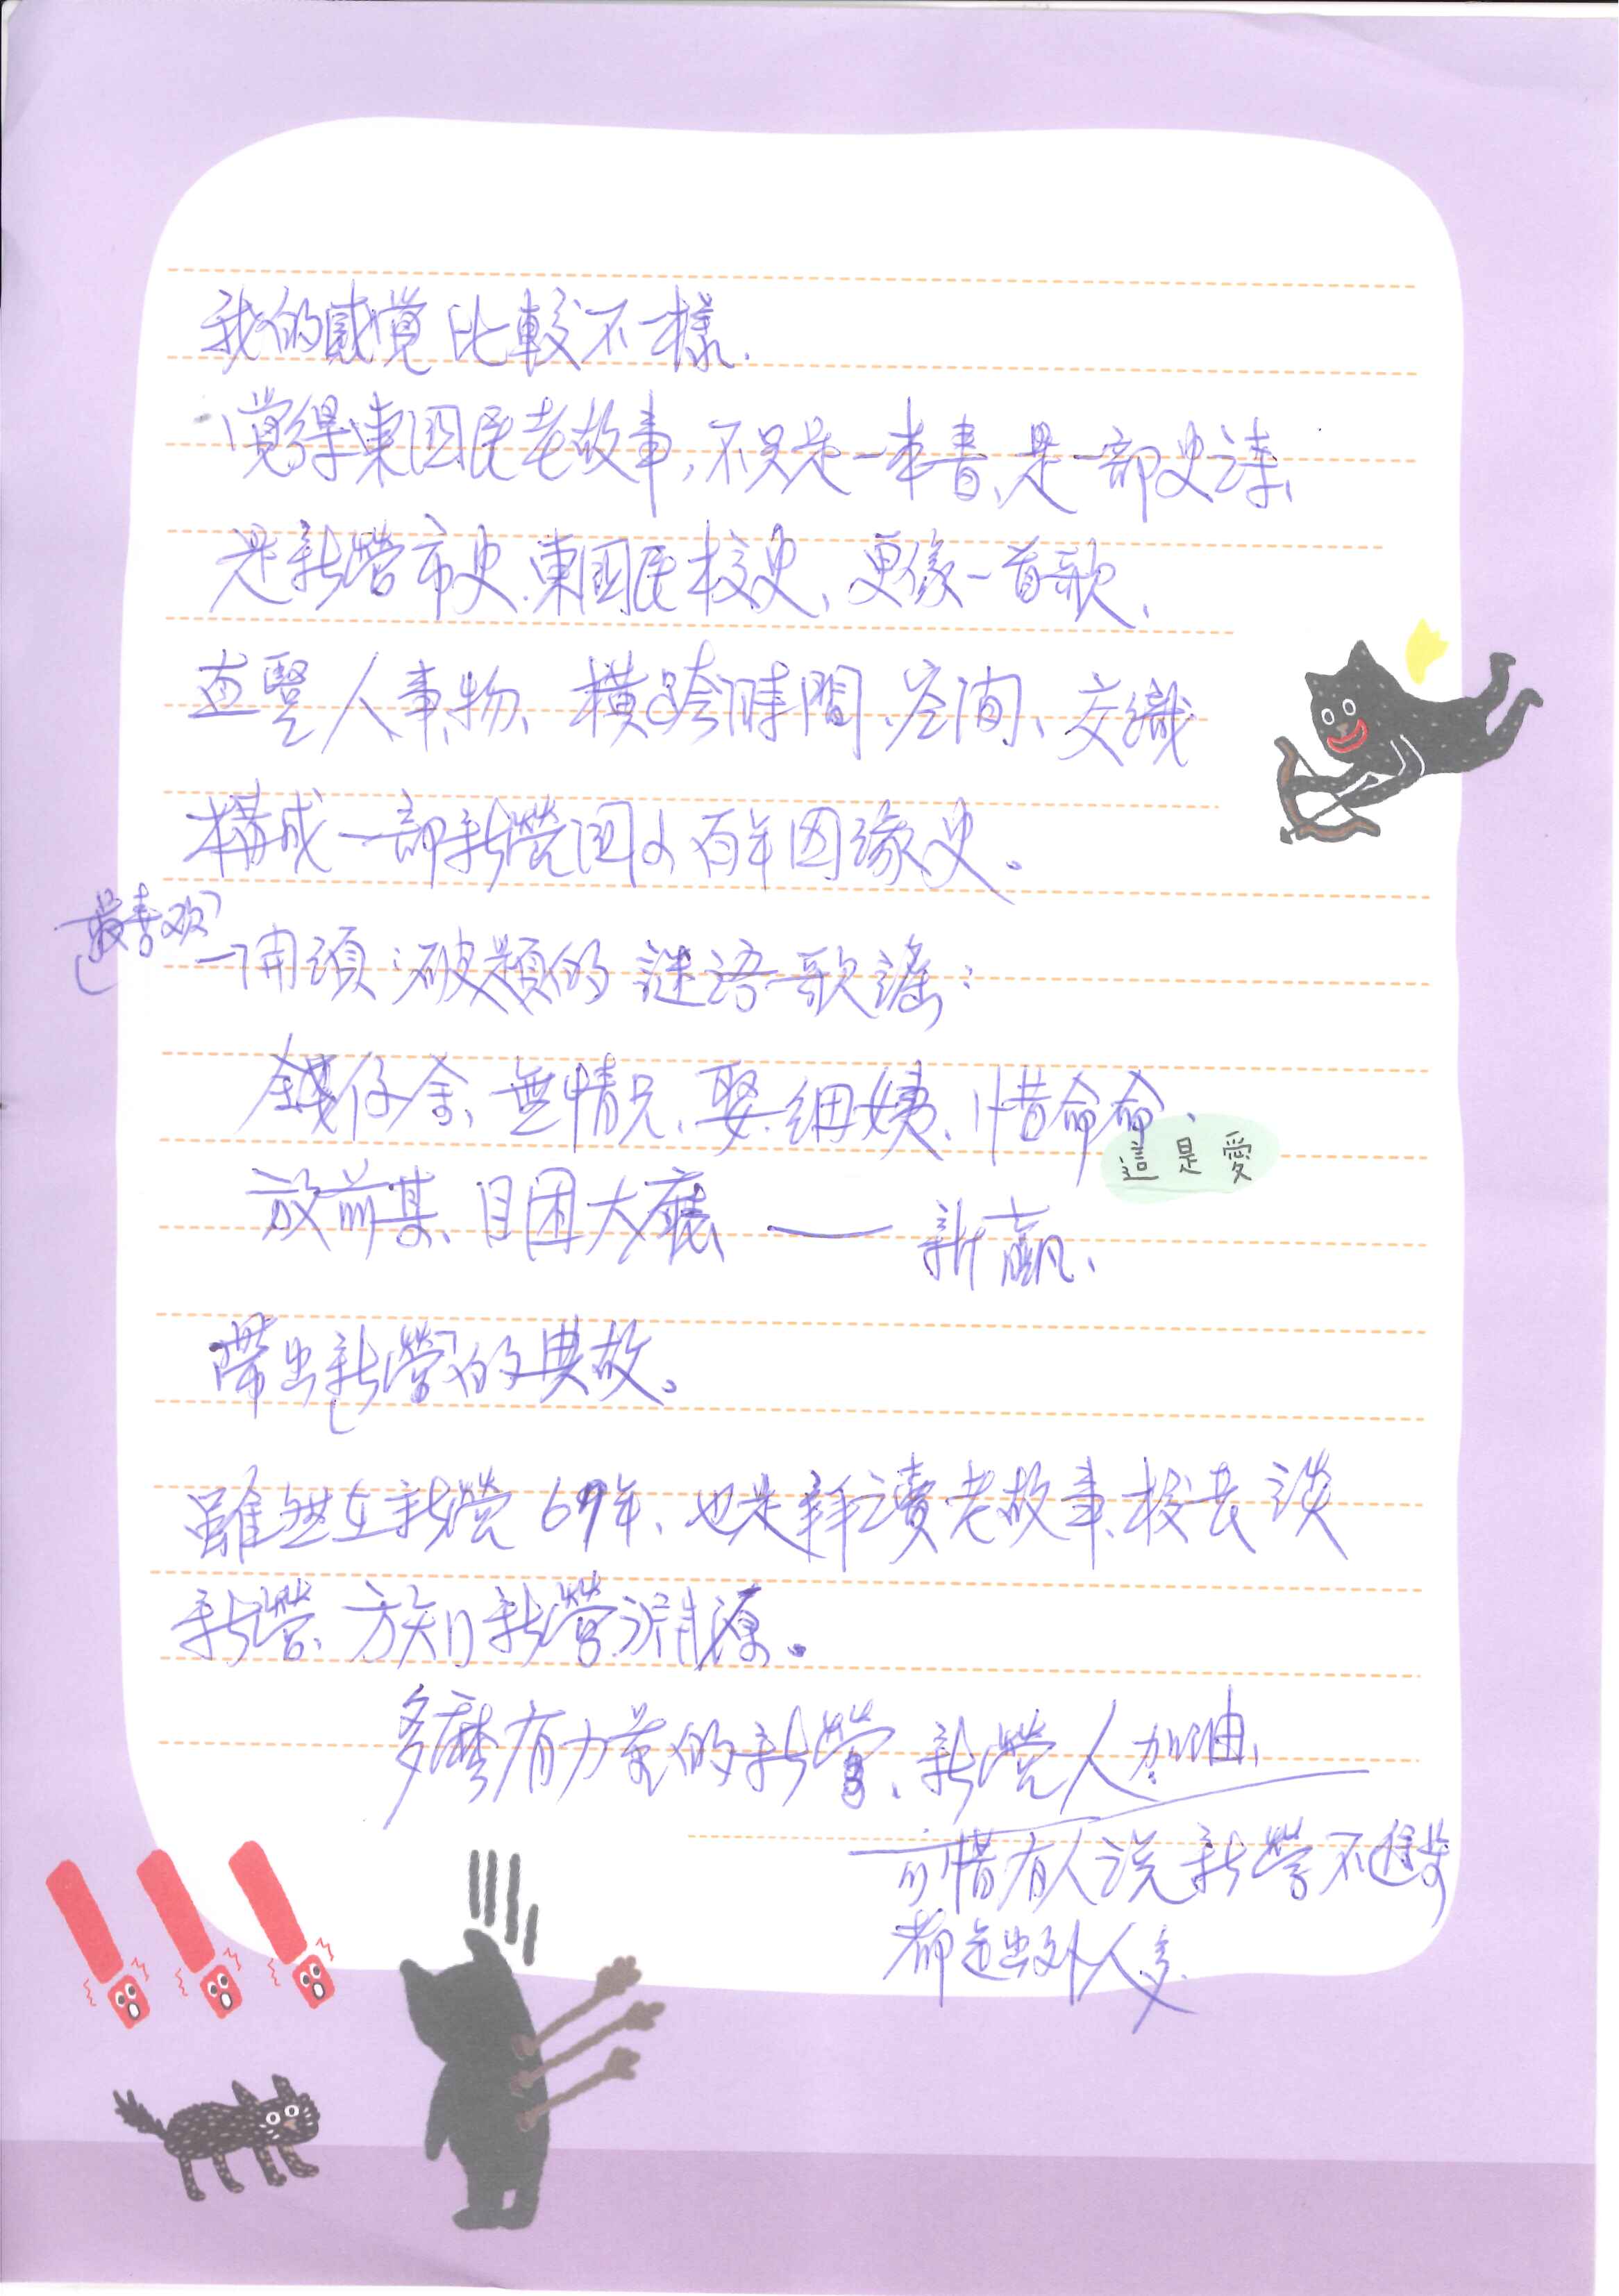 我的感覺比較不一樣.
覺得東国民老故事,不只是一本書、是一部史詩、
是新營市史、東国民校史、更像一首歌、
直豎人事物、橫跨時間、空间、交織
構成一部新營国小百年因緣史。
最喜欢
一開頭破題的謎语歌謠:
錢仔余、無情兄、娶細姨、惜命命、
這是愛
放前某、目困大廳、——新贏、
帶出新營的典故。
雖然在新營69年、也是拜讀老故事、校長談
新營、方知新營淵源。
多麼有力量的新營、新營人加油、
可惜有人說新營不進步
都是出外人多、